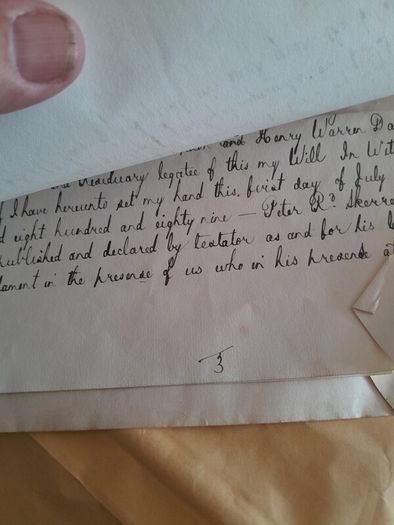 and Henry Warren Da
residuary legatee of this my Will In Wit
I have hereunto set my hand this first day of July
d eight hundred and eighty nine — Peter Rd. Skerre
published and declared by testator as and for his l
tament in the presense of us who in his presence at
3